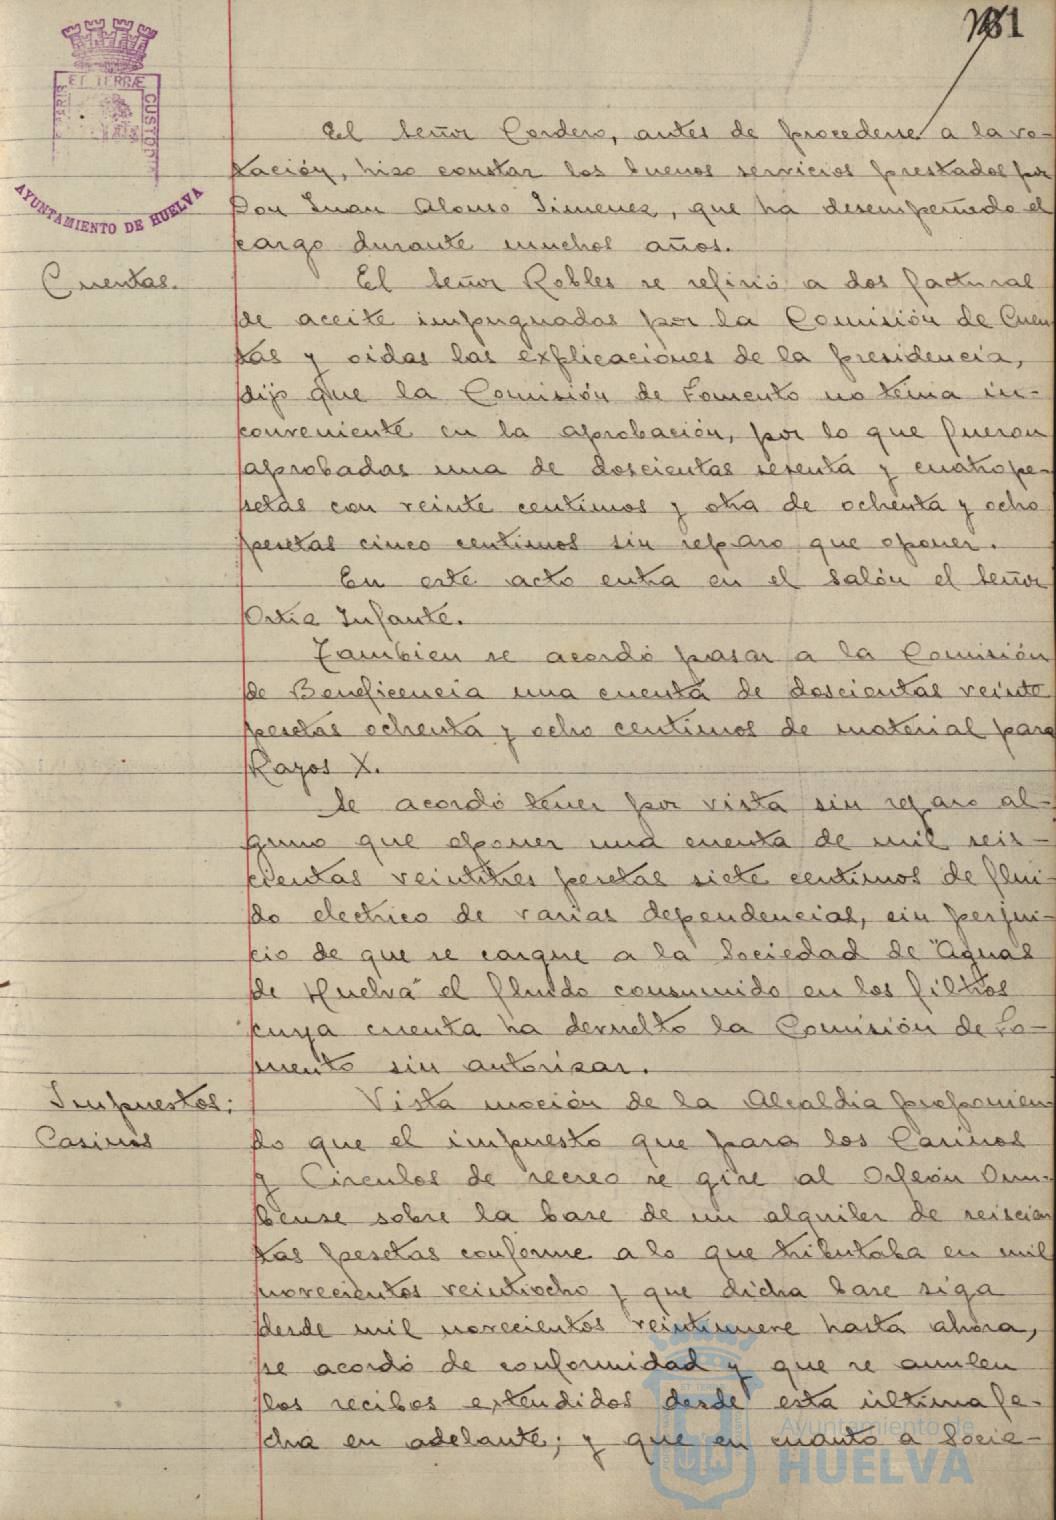 181
ET TERRÆ
CUSTODIA
AYUNTAMIENTO DE HUELVA
El Señor Cordero, antes de procederse a la vo-
tación, hizo constar los buenos servicios prestados por
Don Juan Alonso Jimenez, que ha desempeñado el
cargo durante muchos años.
Cuentas.
El Señor Robles se refirió a dos facturas
de aceite impugnadas por la Comisión de Cuen
tas y oidas las explicaciones de la presidencia,
dijo que la Comisión de Fomento no tenia in-
conveniente en la aprobación, por lo que fueron
aprobadas una de doscientas sesenta y cuatro pe-
setas con veinte centimos y otra de ochenta y ocho
pesetas cinco centimos sin reparo que oponer.
En este acto entra en el salón el Señor
Ortiz Infante.
Tambien se acordó pasar a la Comisión
de Beneficencia una cuenta de doscientas veinte
pesetas ochenta y ocho centimos de material para
Rayos X.
Se acordó tener por vista sin reparo al-
guno que oponer una cuenta de mil seis-
cientas veintitres pesetas siete centimos de flui-
do electrico de varias dependencias, sin perjui-
cio de que se cargue a la Sociedad de "Aguas
de Huelva" el fluido consumido en los filtros
cuya cuenta ha devuelto la Comisión de Fo-
mento sin autorizar.
Impuestos;
Casinos
Vista moción de la Alcaldia proponien
do que el impuesto que para los Casinos
y Circulos de recreo se gire al Orfeón Onu-
bense sobre la base de un alquiler de seiscien
tas pesetas conforme a lo que tributaba en mil
novecientos veintiocho y que dicha base siga
desde mil novecientos veintinueve hasta ahora,
se acordó de conformidad y que se anulen
los recibos extendidos desde esta última fe-
cha en adelante; y que en cuanto a Socie-
Ayuntamiento de
HUELVA